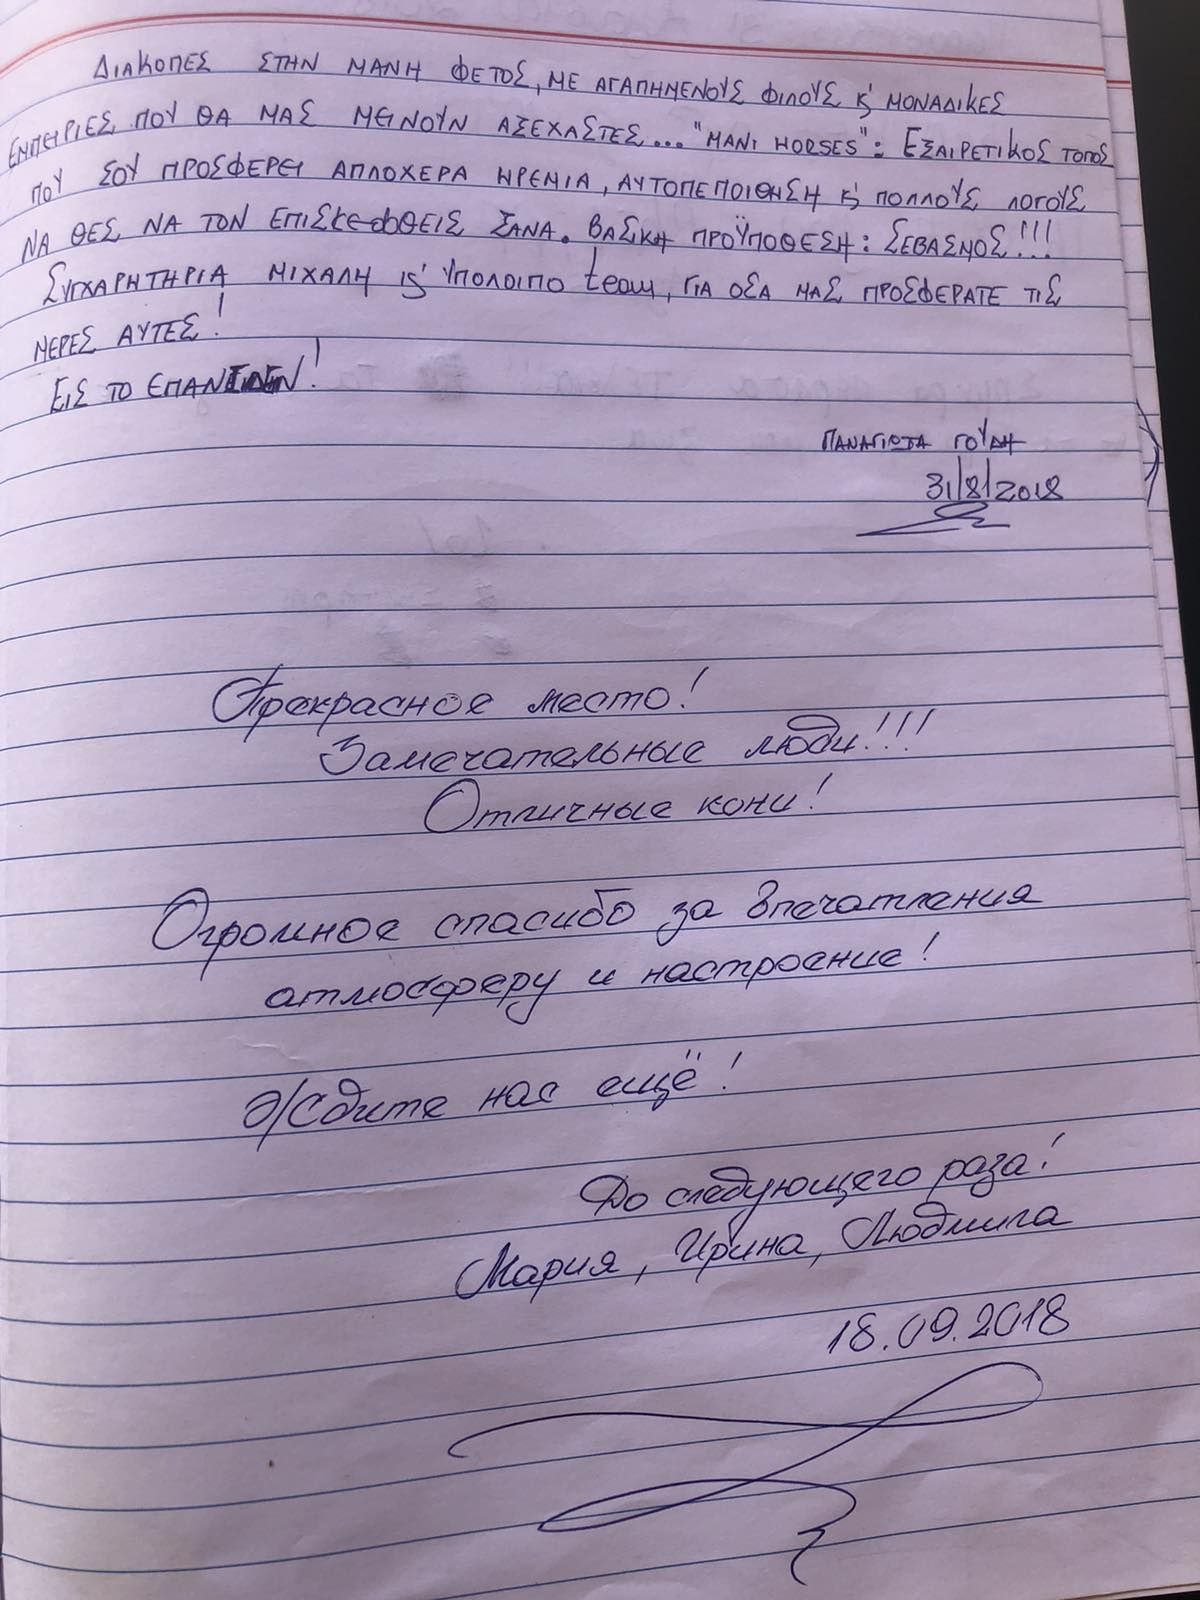 ΔΙΑΚΟΠΕΣ ΣΤΗΝ ΜΑΝΗ ΦΕΤΟΣ, ΜΕ ΑΓΑΠΗΜΕΝΟΥΣ ΦΙΛΟΥΣ Κ' ΜΟΝΑΔΙΚΕΣ
ΕΜΠΕΙΡΙΕΣ ΠΟΥ ΘΑ ΜΑΣ ΜΕΙΝΟΥΝ ΑΞΕΧΑΣΤΕΣ... "MANI HORSES": ΕΞΑΙΡΕΤΙΚΟΣ ΤΟΠΟΣ
ΠΟΥ ΣΟΥ ΠΡΟΣΦΕΡΕΙ ΑΠΛΟΧΕΡΑ ΗΡΕΜΙΑ, ΑΥΤΟΠΕΠΟΙΘΗΣΗ Κ' ΠΟΛΛΟΥΣ ΛΟΓΟΥΣ
ΝΑ ΘΕΣ ΝΑ ΤΟΝ ΕΠΙΣΚΕΦΘΕΙΣ ΞΑΝΑ. ΒΑΣΙΚΗ ΠΡΟΫΠΟΘΕΣΗ: ΣΕΒΑΣΜΟΣ!!!
ΣΥΓΧΑΡΗΤΗΡΙΑ ΜΙΧΑΛΗ Κ' ΥΠΟΛΟΙΠΟ team, ΓΙΑ ΟΣΑ ΜΑΣ ΠΡΟΣΦΕΡΑΤΕ ΤΙΣ
ΜΕΡΕΣ ΑΥΤΕΣ!
ΕΙΣ ΤΟ ΕΠΑΝΙΔΕΙΝ!
ΠΑΝΑΓΙΩΤΑ ΓΟΥΔΗ
31/8/2018
Прекрасное место!
Замечательные люди!!!
Отличные кони!
Огромное спасибо за впечатления
атмосферу и настроение!
Ждите нас ещё!
До следующего раза!
Мария, Ирина, Людмила
18.09.2018